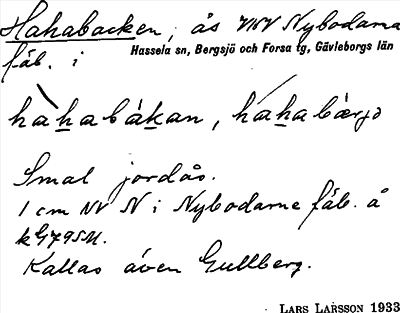 Hahabacken, ås VNV Nybodarna
fäb. i Hassela sn, Bergsjö och Forsa tg, Gävleborgs län
hàhabákan, háhabærjə
Smal jordås.
1 cm NV N i Nybodarne fäb. å
kG79SM.
Kallas även Gullberg.
LARS LARSSON 1933